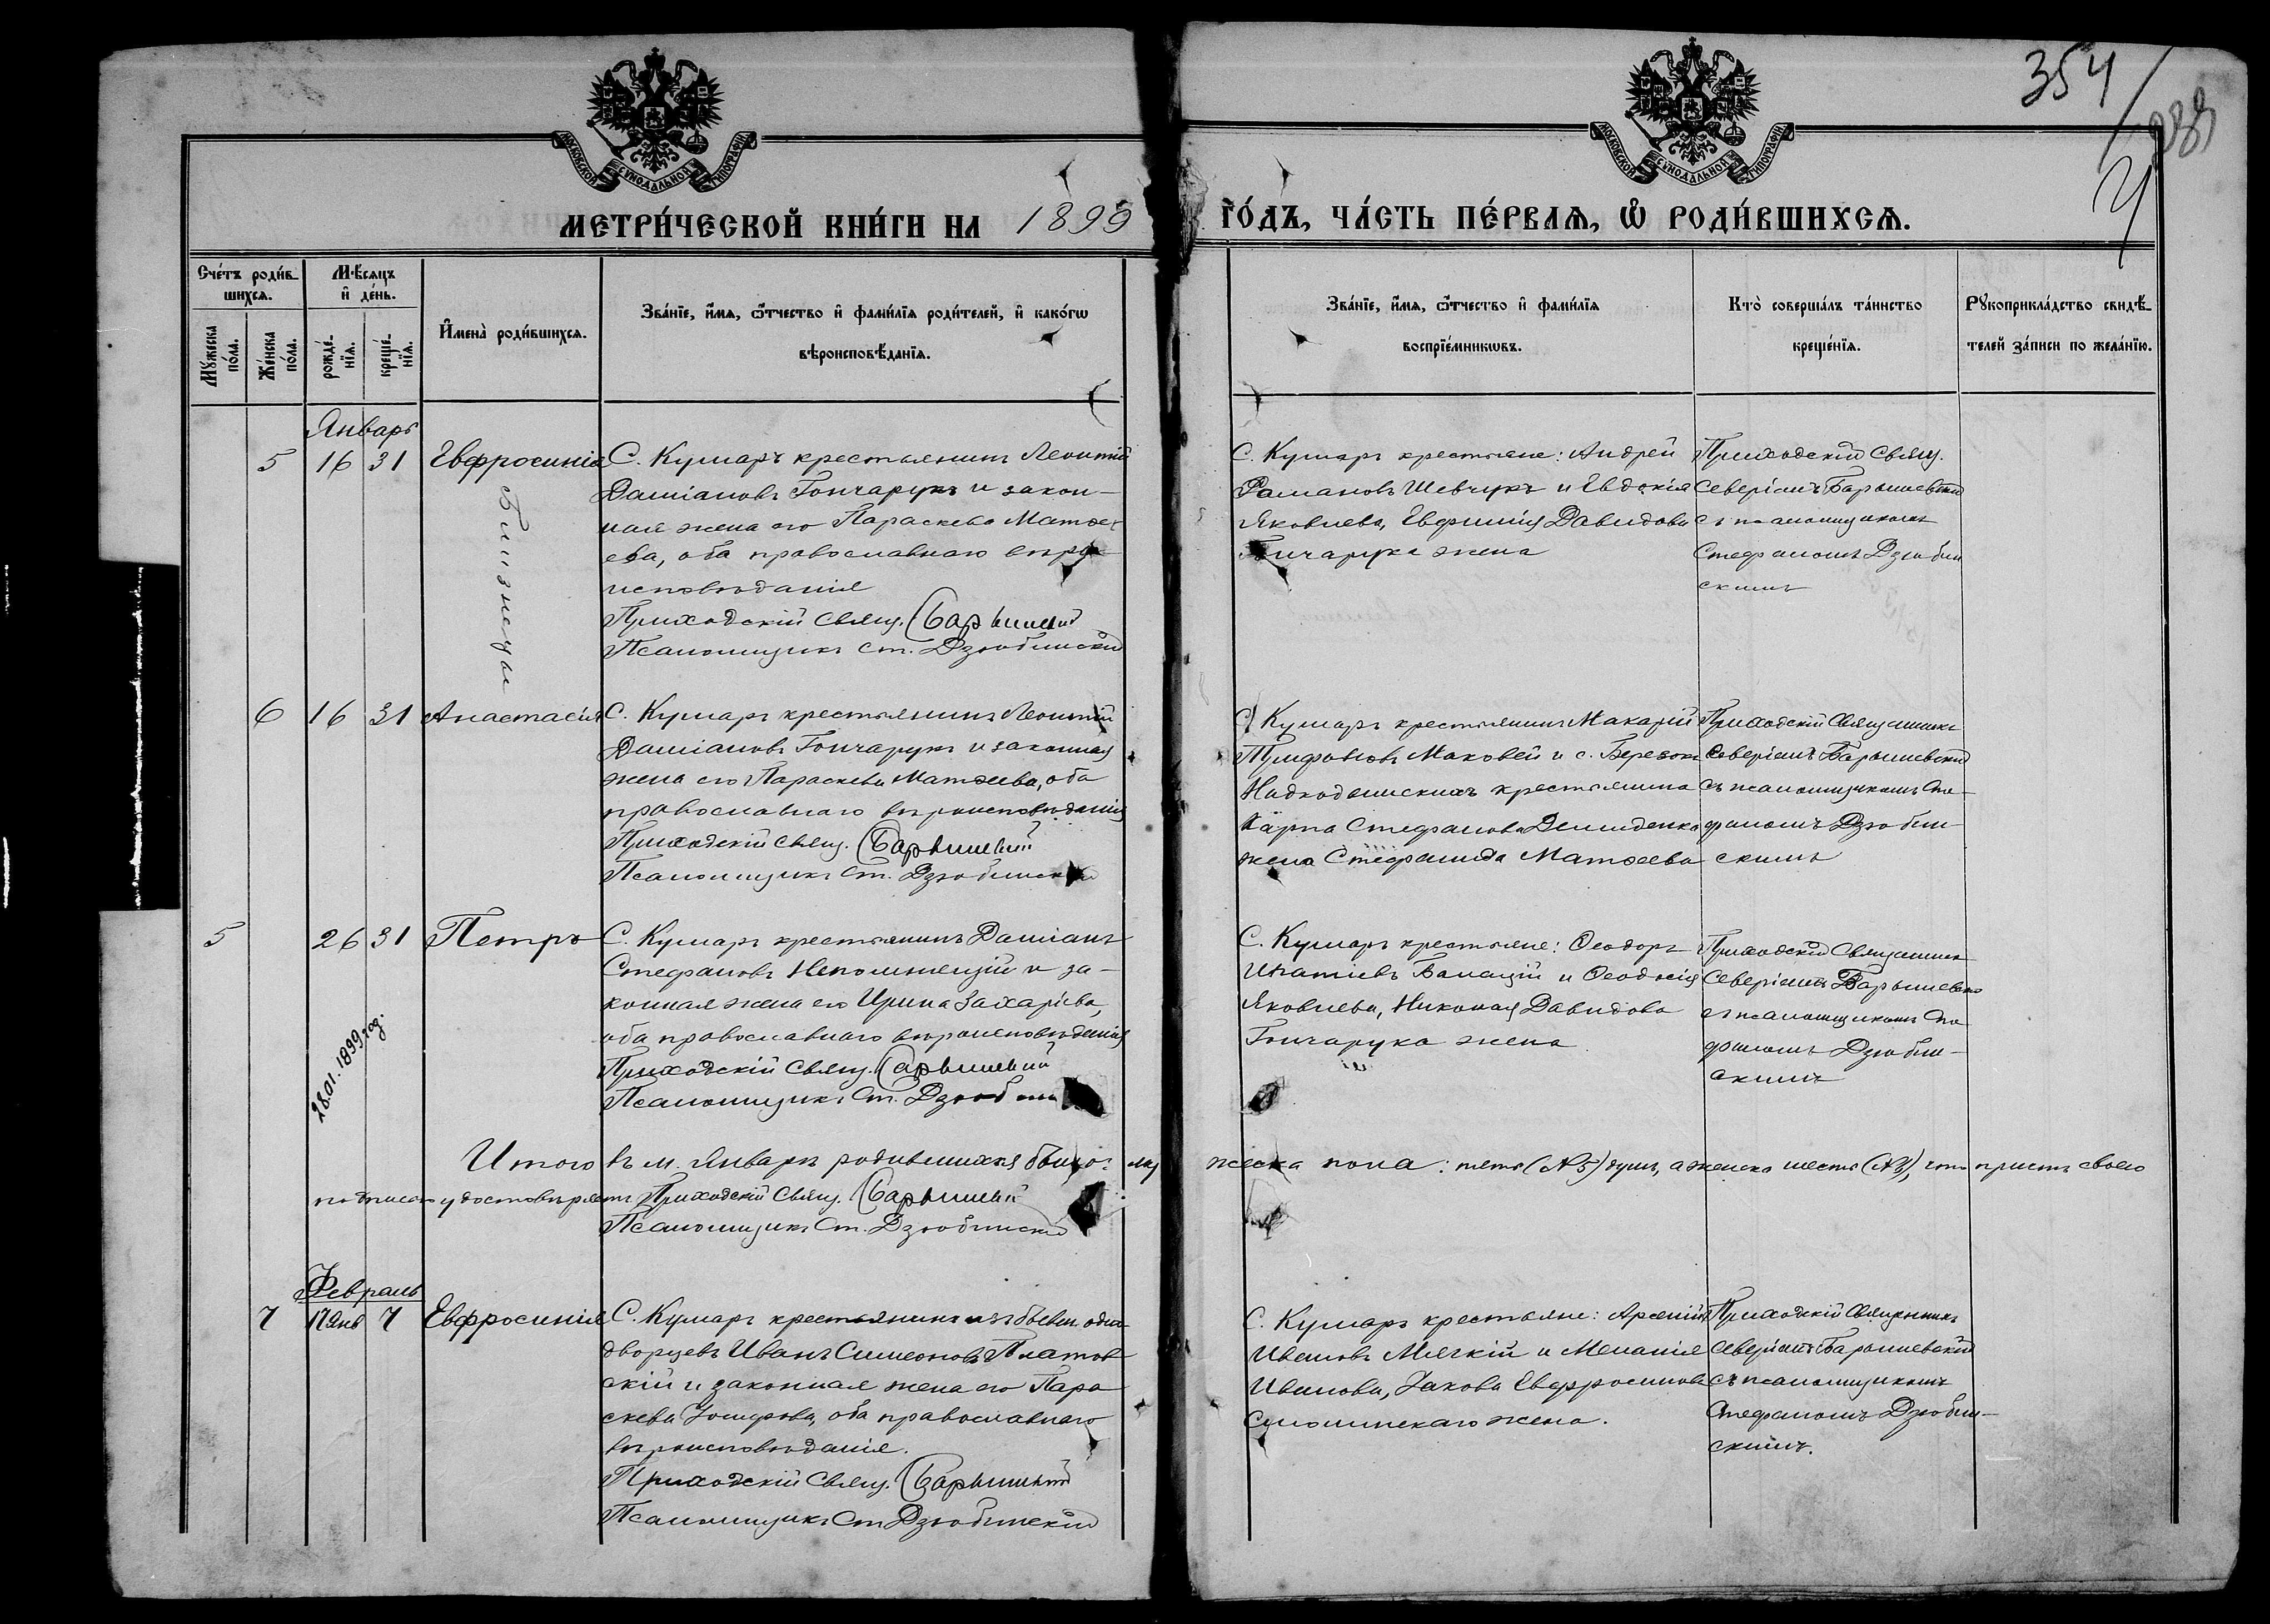 354
388
4
МОСКОВСКОЙ СѴНОДАЛЬНОЙ ТИПОГРАФІИ
МОСКОВСКОЙ СѴНОДАЛЬНОЙ ТИПОГРАФІИ
МЕТРИ́ЧЕСКОЙ КНИ́ГИ НА 1899 ГО́ДЪ, ЧА́СТЬ ПЕ́РВАѦ, Ѡ РОДИ́ВШИХСѦ.
Сче́тъ роди́в-
шихсѧ.
Мꙋ́жеска по́ла.
Же́нска по́ла.
Мѣ́сяцъ
и҆ де́нь.
рожде́-нїѧ.
креще́-нїѧ.
И҆мена̀ роди́вшихсѧ.
Зва́нїе, и҆́мѧ, ѻ҆́тчество и҆ фамѝлїѧ роди́телей, и҆ како́гѡ
вѣроисповѣ́данїѧ.
Зва́нїе, и҆́мѧ, ѻ҆́тчество и҆ фамѝлїѧ
воспрїе́мникѡвъ.
Кто̀ соверша́лъ та́инство
креще́нїѧ.
Рꙋкоприкла́дство свидѣ́-
телей за́писи по жела́нїю.
Январь
5 16 31 Евфросинія
Близнецы
С. Кумаръ крестьянинъ Леонтій
Даміановъ Гончарукъ и закон-
ная жена его Параскева Матѳе-
ева, оба православнаго вѣро-
исповѣданія
Приходскій Свящ. Барышевскій
Псаломщикъ Ст. Дзюбинскій
С. Кумаръ крестьяне: Андрей
Романовъ Шевчукъ и Евдокія
Яковлева, Евфимія Давидова
Гончарука жена
Приходскій Свящ.
Северіанъ Барышевскій
съ псаломщикомъ
Стефаномъ Дзюбин
скимъ
6 16 31 Анастасія
С. Кумаръ крестьянинъ Леонтій
Даміановъ Гончарукъ и законная
жена его Параскева Матѳеева, оба
православнаго вѣроисповѣданія
Приходскій Свящ. Барышевскій
Псаломщикъ Ст. Дзюбинскій
С. Кумаръ крестьянинъ Макарій
Трифоновъ Маковей и с. Березокъ
крестьянина
Карпа Стефанова Демиденка
жена Стефанида Матѳеева
Приходскій Священникъ
Северіанъ Барышевскій
съ псаломщикомъ Сте-
фаномъ Дзюбин-
скимъ
5 26 31 Петръ
28.01.1899 год.
С. Кумаръ крестьянинъ Даміанъ
Стефановъ Непомнящій и за-
конная жена его Ирина Захаріева,
оба православнаго вѣроисповѣданія
Приходскій Свящ. Барышевскій
Псаломщикъ Ст. Дзюбин
С. Кумаръ крестьяне: Ѳеодоръ
Игнатіевъ и Ѳеодосія
Яковлева, Николая Давидова
Гончарука жена
Приходскій Священникъ
Северіанъ Барышевскій
съ псаломщикомъ Сте
фаномъ Дзюбин-
скимъ
Итого въ м. Январѣ родившихся было: муж
жеска пола: пять (№5) душъ, а женска шесть (№6), что причтъ своею
подписью удостовѣряетъ Приходскій Свящ. Барышевскій
Псаломщикъ Ст. Дзюбинскій
Февраль
7 17 Янв 7 Евфросинія
С. Кумаръ крестьянинъ изъ бывш. одно-
дворцевъ Иванъ Симеоновъ Платов
скій и законная жена его Пара
скева Іосифова, оба православнаго
вѣроисповѣданія.
Приходскій Свящ. Барышевскій
Псаломщикъ Ст Дзюбинскій
С. Кумаръ крестьяне: Арсеній
Ивановъ Мягкій и Меланія
Иванова, Іакова Евфросинова
жена.
Приходскій Священникъ
Северіанъ Барышевскій
съ псаломщикомъ
Стефаномъ Дзюбин-
скимъ.